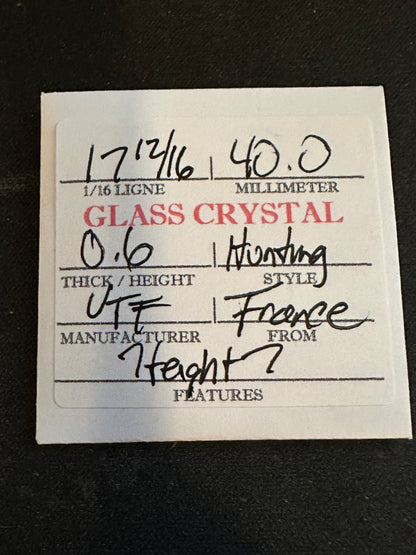 17 12/16 40.0
1/16 LIGNE MILLIMETER
GLASS CRYSTAL
0.6 Hunting
THICK / HEIGHT STYLE
VTF France
MANUFACTURER FROM
?Height?
FEATURES